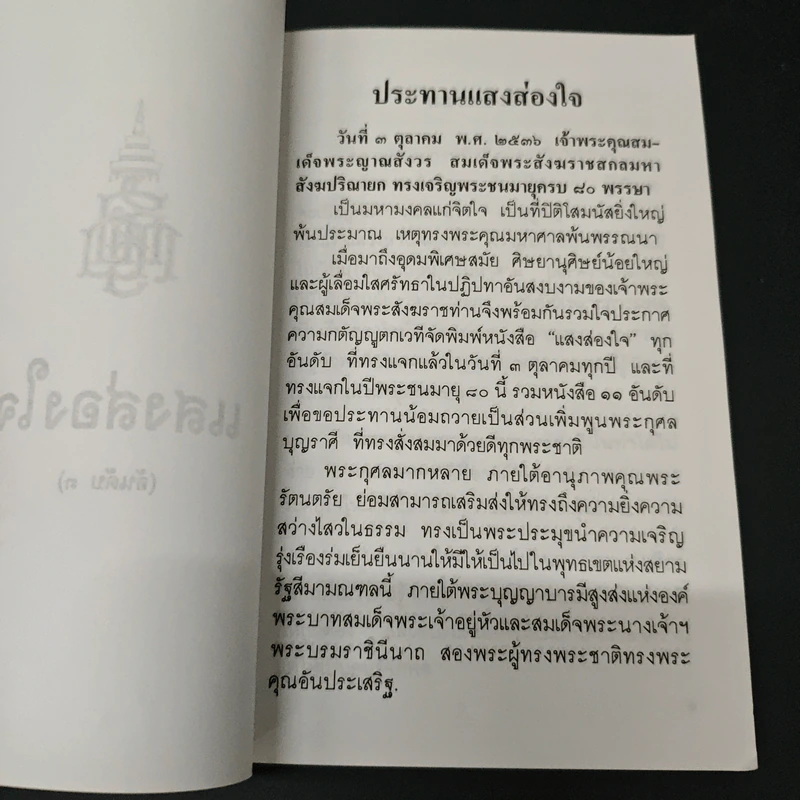 ประทานแสงส่องใจ
วันที่ ๓ ตุลาคม พ.ศ. ๒๕๓๖ เจ้าพระคุณสม-
เด็จพระญาณสังวร สมเด็จพระสังฆราชสกลมหา
สังฆปริณายก ทรงเจริญพระชนมายุครบ ๘๐ พรรษา
เป็นมหามงคลแก่จิตใจ เป็นที่ปีติโสมนัสยิ่งใหญ่
พ้นประมาณ เหตุทรงพระคุณมหาศาลพ้นพรรณนา
เมื่อมาถึงอุดมพิเศษสมัย ศิษยานุศิษย์น้อยใหญ่
และผู้เลื่อมใสศรัทธาในปฏิปทาอันสงบงามของเจ้าพระ
คุณสมเด็จพระสังฆราชท่านจึงพร้อมกันรวมใจประกาศ
ความกตัญญูตกเวทีจัดพิมพ์หนังสือ "แสงส่องใจ" ทุก
อันดับ ที่ทรงแจกแล้วในวันที่ ๓ ตุลาคมทุกปี และที่
ทรงแจกในปีพระชนมายุ ๘๐ นี้ รวมหนังสือ ๑๑ อันดับ
เพื่อขอประทานน้อมถวายเป็นส่วนเพิ่มพูนพระกุศล
บุญราศี ที่ทรงสั่งสมมาด้วยดีทุกพระชาติ
พระกุศลมากหลาย ภายใต้อานุภาพคุณพระ
รัตนตรัย ย่อมสามารถเสริมส่งให้ทรงถึงความยิ่งความ
สว่างไสวในธรรม ทรงเป็นพระประมุขนำความเจริญ
รุ่งเรืองร่มเย็นยืนนานให้มีให้เป็นไปในพุทธเขตแห่งสยาม
รัฐสีมามณฑลนี้ ภายใต้พระบุญญาบารมีสูงส่งแห่งองค์
พระบาทสมเด็จพระเจ้าอยู่หัวและสมเด็จพระนางเจ้าฯ
พระบรมราชินีนาถ สองพระผู้ทรงพระชาติทรงพระ
คุณอันประเสริฐ.
แสงส่องใจ
(อันดับ ๓)